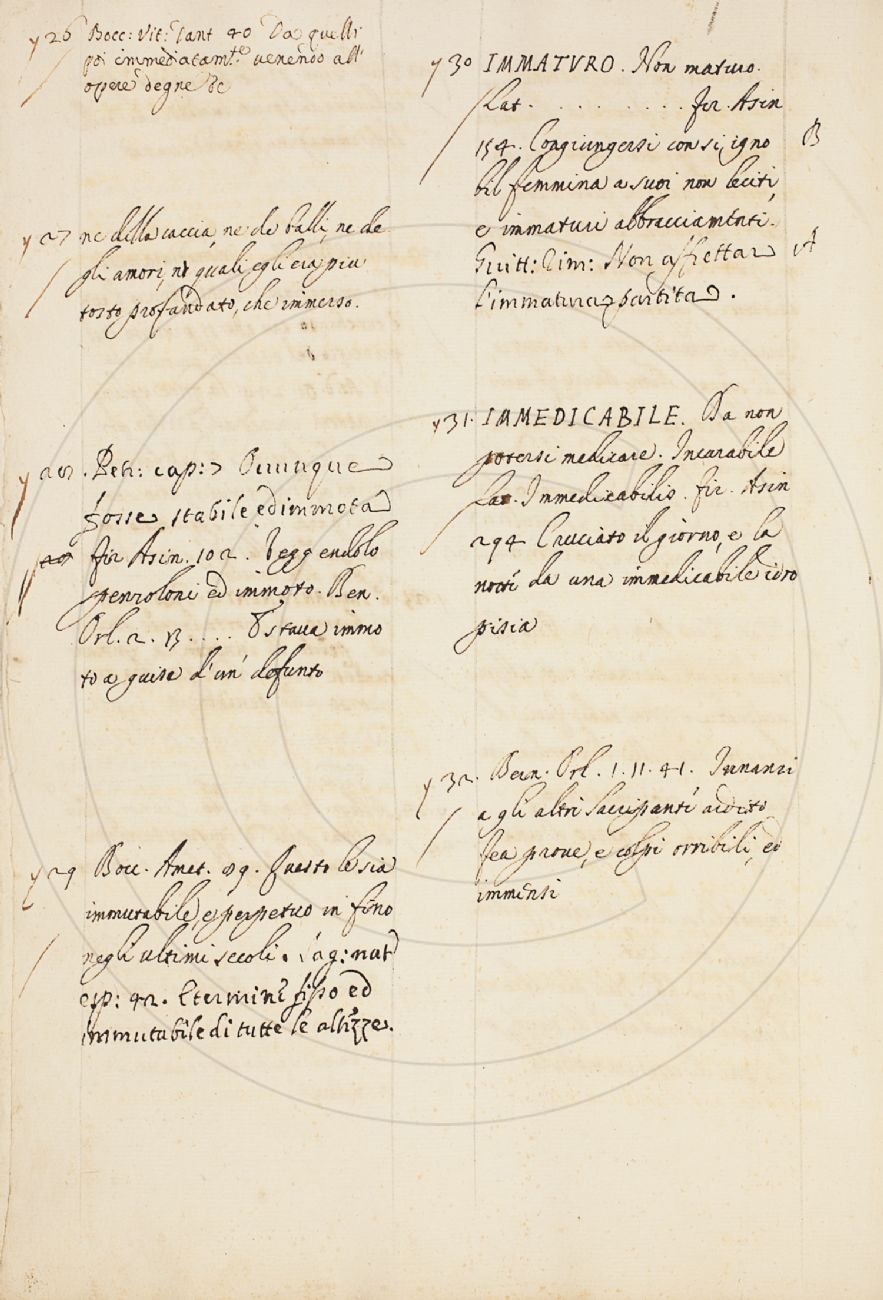 y 26 Bocc: Vit: Dant 40 Da quelli
poi immediatamte. venendo all'
opere degne &c
y 27 ne della caccia, ne de balli, ne de
gli amori, ne quali egli era piu
tosto profundato, che immerso.
y 28. Petr: cap: 7 Ovunque
fosse stabile ed immota
fir Asin. 102. Veggendolo
penzolone ed immoto. Ber.
Orl. 2. 13 .... E stava immo
to a guisa d'un' defunto
y 29 Bocc. Amet. 89. Questo le sia
immutabile, e perpetuo in fino
negli ultimi secoli. Pag: nat
esp: 42. E termine fisso ed
immutabile di tutte le altezze.
y 30 IMMATVRO. Non maturo.
Lat. . . . . . . . . . fir. Asin
154. Congiungersi con sì igno B
bil femmina a suoi non leciti,
e immaturi abbracciamenti.
Guitt: Rim: Non affrettar A
l'immatura partita.
y 31. IMMEDICABILE. Da non
potersi medicare. Incurabile
Lat. Immedicabilis. fir. Asin
294 Cruciato il giorno, e la
notte da una immedicabile idro
pisia
y 32. Bern: Orl. 1. 11. 41. Innanzi
a gli altri Saccipante ardito
fea prove, e colpi orribili, ed
immensi